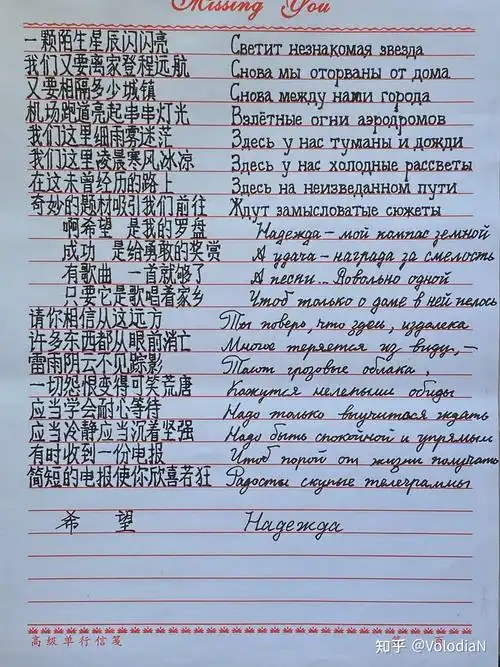 Missing You
一颗陌生星辰闪闪亮 Светит незнакомая звезда
我们又要离家登程远航 Снова мы оторваны от дома
又要相隔多少城镇 Снова между нами города
机场跑道亮起串串灯光 Взлётные огни аэродромов
我们这里细雨雾迷茫 Здесь у нас туманы и дожди
我们这里凌晨寒风冰凉 Здесь у нас холодные рассветы
在这未曾经历的路上 Здесь на неизведанном пути
奇妙的题材吸引我们前往 Ждут замысловатые сюжеты
啊希望 是我的罗盘 Надежда - мой компас земной
成功 是给勇敢的奖赏 А удача - награда за смелость
有歌曲 一首就够了 А песни... Довольно одной
只要它是歌唱着家乡 Чтоб только о доме в ней пелось
请你相信从这远方 Ты поверь, что здесь, издалека
许多东西都从眼前消亡 Многое теряется из виду, -
雷雨阴云不见踪影 Тают грозовые облака,
一切怨恨变得可笑荒唐 Кажутся нелепыми обиды
应当学会耐心等待 Надо только выучиться ждать
应当冷静应当沉着坚强 Надо быть спокойной и упрямым
有时收到一份电报 Чтоб порой от жизни получать
简短的电报使你欣喜若狂 Радости скупые телеграммы
希 望 Надежда
高级单行信笺
知乎 @VolodiaN